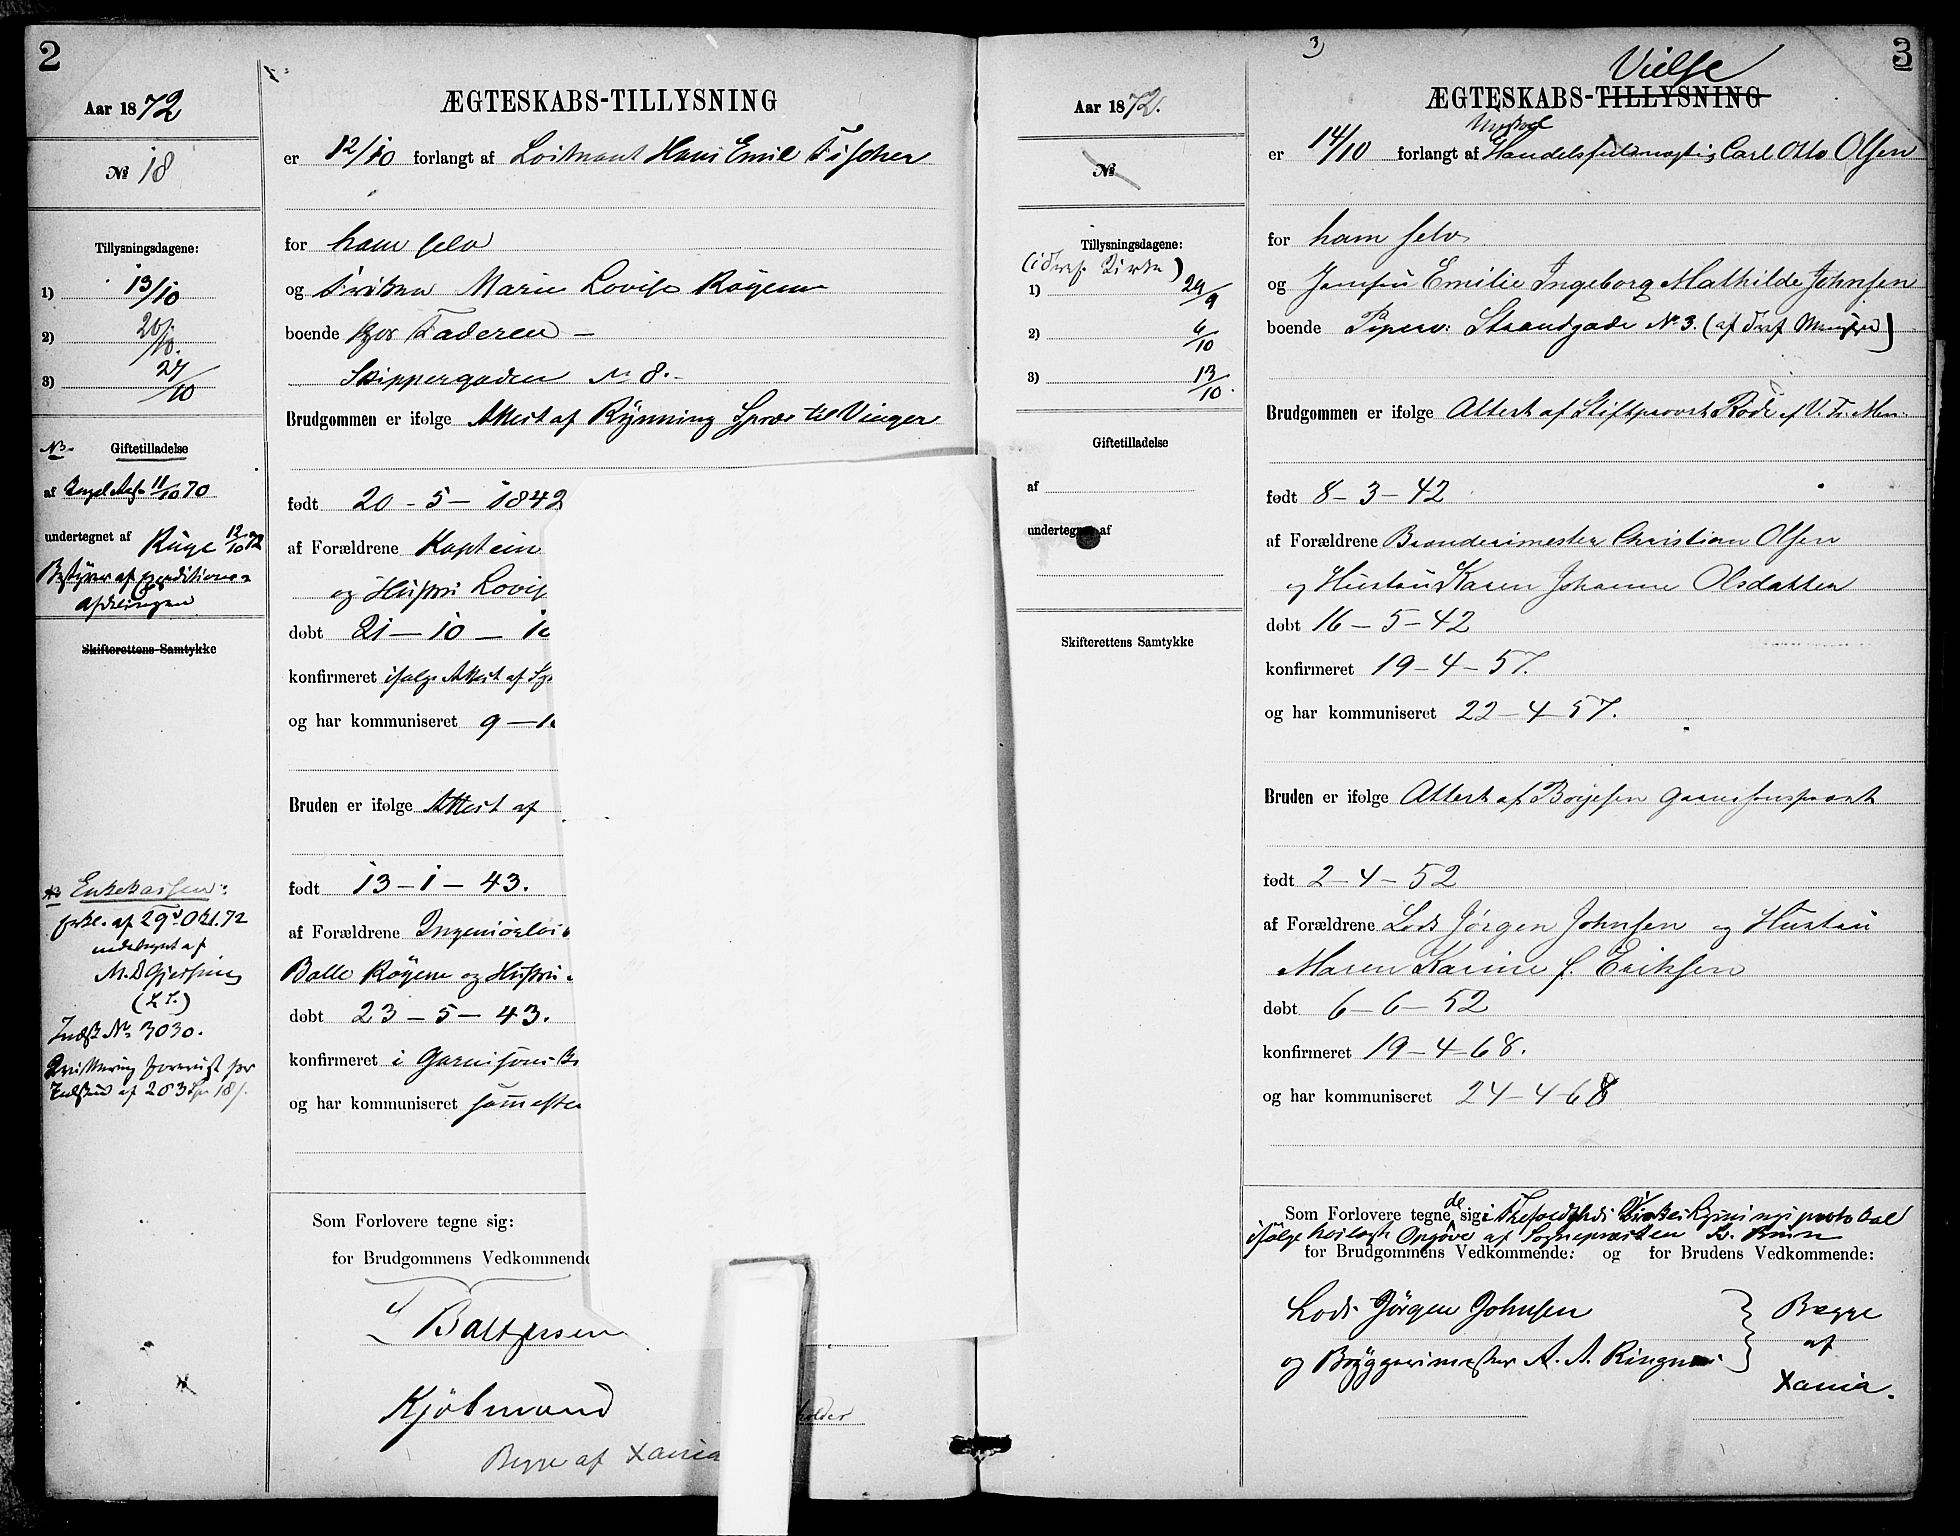 2
Aar 1872
№ 18
Tillysningsdagene:
1) 13/10
2) 20/10.
3) 27/10
NB. Giftetilladelse
af Kngl Res. 11/10 70
undertegnet af Ruge 12/10 72
Bestyrer af Expeditions-
afdelingen
Skifterettens Samtykke
NB Enkekassen:
erkl. af 29d Okt. 72
undertegnet af
M. D Gjersing
(L S.)
Indsk No 3030.
Kvittering foreviist for
Indskud af 203 Sp 18 s.
ÆGTESKABS-TILLYSNING
er 12/10 forlangt af Løitnant Hans Emil Fischer
for ham selv
og Frøken Marie Lovise Røyem
boende hos Faderen –
Skippergaden No 8.-
Brudgommen er ifølge Attest af Rynning Spræ til Vinger
født 20 - 5 - 1842
af Forældrene Kaptein
og Hustru Lovis
døbt 21 - 10 -
konfirmeret ifølge Attest af
og har kommuniseret 9 -
Bruden er ifølge Attest af
født 13 - 1 - 43.
af Forældrene Ingeniørløi
Balle Røyem og Hustru
døbt 23 - 5 - 43.
konfirmeret i Garnisons
og har kommuniseret
Som Forlovere tegne sig:
for Brudgommens Vedkommende
Baltzersen
Kjøbmand
holder
Begge af Xania
3)
3
Aar 1872.
№
Tillysningsdagene:
(i Tref. Kirke)
1) 29/9
2) 6/10
3) 13/10.
Giftetilladelse
af
undertegnet af
Skifterettens Samtykke
Vielse
ÆGTESKABS-TILLYSNING
Ungkarl
er 14/10 forlangt af Handelsfuldmægtig Carl Otto Olsen
for ham selv
og Jomfru Emilie Ingeborg Mathilde Johnsen
boende Piperv: Strandgade No 3. (af Tref Menighed)
Brudgommen er ifølge Attest af Stiftsprovst Rode af V. Fr. Men.
født 8 - 3 - 42
af Forældrene Brænderimester Christian Olsen
og Hustru Karen Johanne Olsdatter
døbt 16 - 5 - 42
konfirmeret 19 - 4 - 57.
og har kommuniseret 22 - 4 - 57.
Bruden er ifølge Attest af Børjesen Garnisonsprovst
født 2 - 4 - 52
af Forældrene Lods Jørgen Johnsen og Hustru
Maren Karine f. Eriksen
døbt 6 - 6 - 52
konfirmeret 19 - 4 - 68.
og har kommuniseret 24 - 4 - 68
Som Forlovere tegnede sig i Trefoldigheds Kirkes Lysningsprotokol
ifølge heilagt Opgave af Sognepræsten Br. Bruun
for Brudgommens Vedkommende: og for Brudens Vedkommende:
Lods Jørgen Johnsen
og Bryggerimester A. A. Ringnes
Begge
af
Xania.